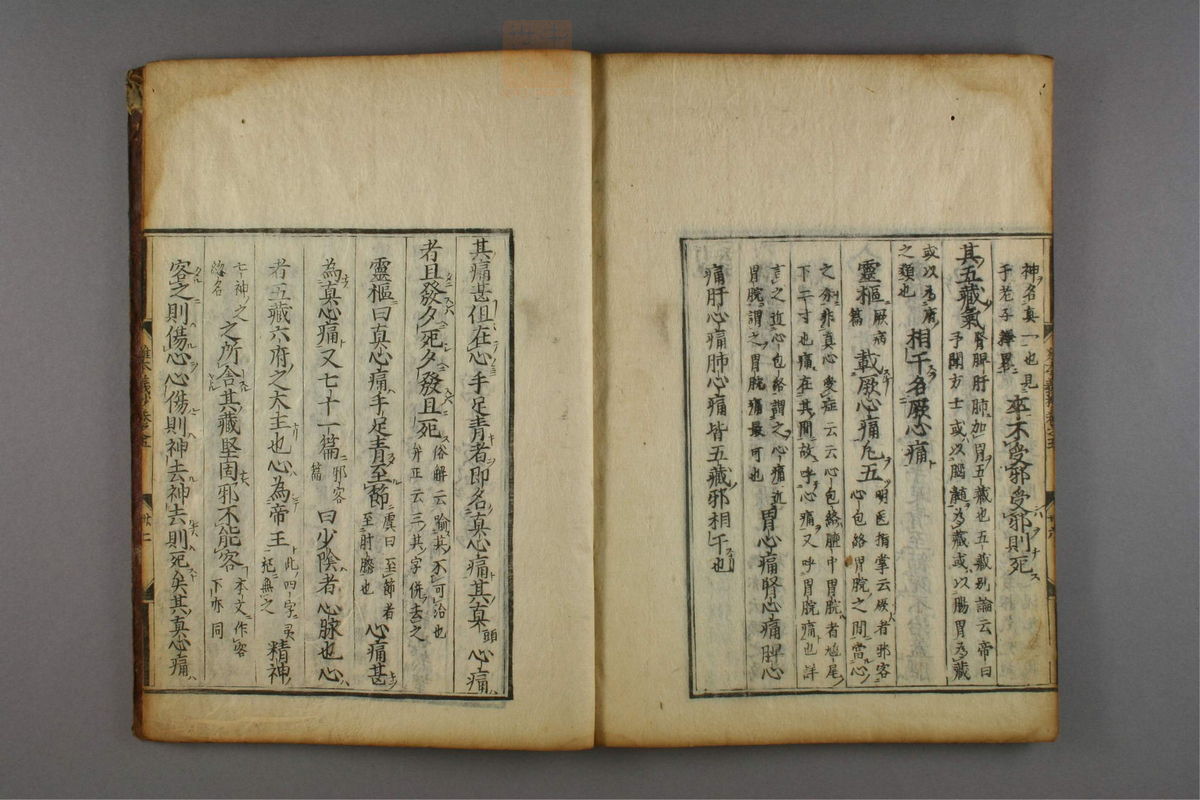 神名真一也見
于老子釋畧 卒不受邪受邪則死
其五藏氣 腎脾肝肺加胃五藏也五藏別論云帝曰
予聞方士或以腦髓為藏或以腸胃為藏
或以為府
之類也 相干名厥心痛
靈樞 厥病
篇 載厥心痛凡五 明医指掌云厥者邪客
心包絡胃脘之間當心
之分非真心受症云云心包絡膻中胃脘者鳩尾
下二寸也痛在其間故呼心痛又呼胃脘痛也詳
言之近心包絡謂之心痛近
胃脘謂之胃脘痛最可也 胃心痛腎心痛脾心
痛肝心痛肺心痛皆五藏邪相干也
其痛甚但在心手足青者即名真心痛其真 頭 心痛
者旦發夕死夕發旦死 俗解云 其不可治也
弁正云三其字併去之
靈樞曰真心痛手足青至節 虞曰至節者
至肘膝也 心痛甚
為真心痛又七十一篇 邪客
篇 曰少陰者心脉也心
者五藏六府之大主也心為帝王 此四字灵
枢無之 精神
七神之
總名 之所舍其藏堅固邪不能容 本文作客
下亦同
容之則傷心心傷則神去神去則死矣其真心痛